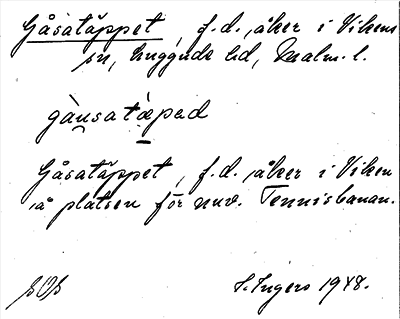 Gåsatäppet, f.d. åker i Vikens
sn, Luggude hd, Malm. l.
gàusatæped
Gåsatäppet, f.d. åker i Viken
å platsen för nuv. Tennisbanan.
I. Ingers 1948.